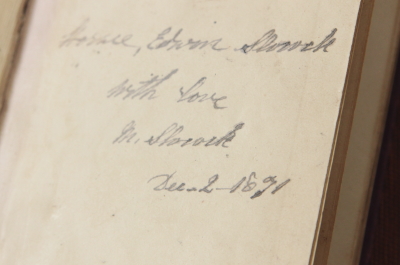 Horace, Edwin Slorock
with Love
M. Slorock
Dec-2-1891